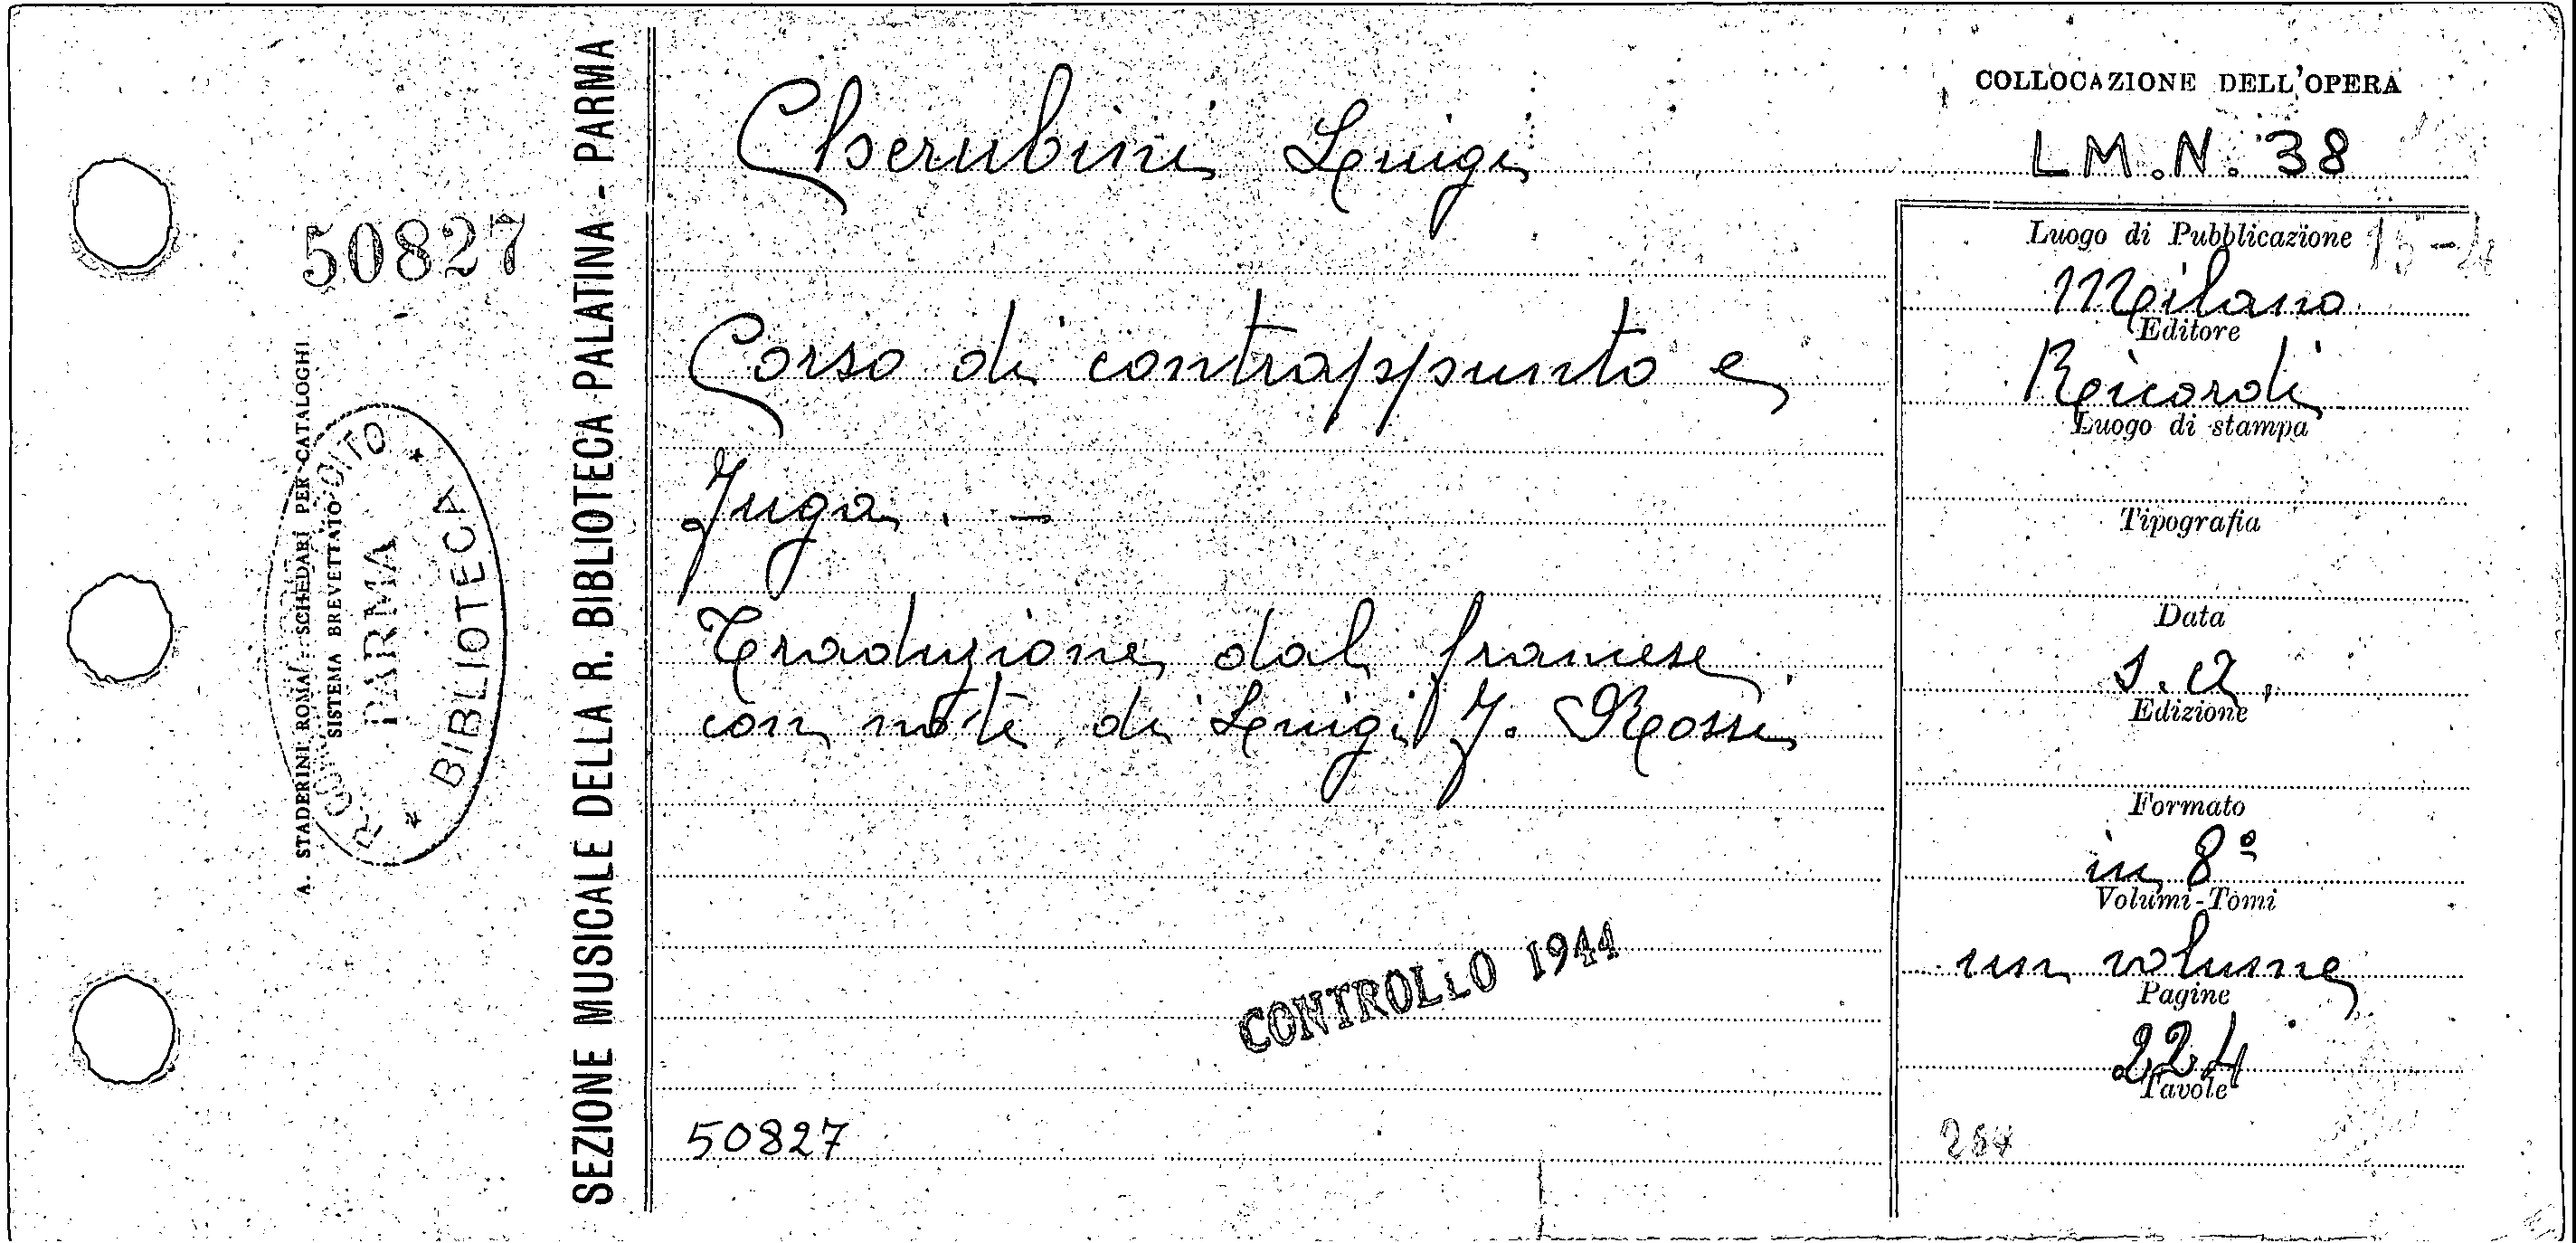 COLLOCAZIONE DELL'OPERA
LM.N. 38
Cherubini Luigi
Corso di contrappunto e
Fuga. -
Traduzione dal francese
con note di Luigi F. Rossi
CONTROLLO 1944
50827
Luogo di Pubblicazione
Milano
Editore
Ricordi
Luogo di stampa
Tipografia
Data
s.a.
Edizione
Formato
in 8º
Volumi-Tomi
un volume
Pagine
224
Tavole
50827
SEZIONE MUSICALE DELLA R. BIBLIOTECA PALATINA - PARMA
A. STADERINI ROMA SCHEDARI PER CATALOGHI
SISTEMA BREVETTATO
PARMA
BIBLIOTECA